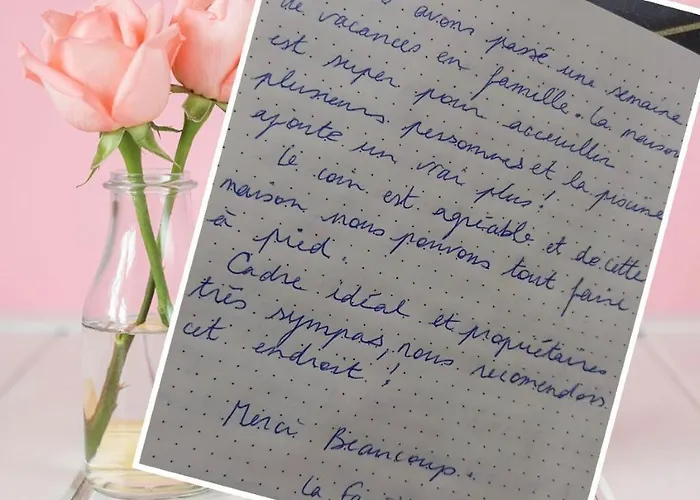 avons passé une semaine
de vacances en famille. La maison
est super pour acceuillir
plusieurs personnes et la piscine
ajoute un vrai plus!
Le coin est agréable et de cette
maison nous pouvons tout faire
à pied.
Cadre idéal et propriétaires
très sympas, nous recomendons
cet endroit!
Merci Beaucoup.
La fa